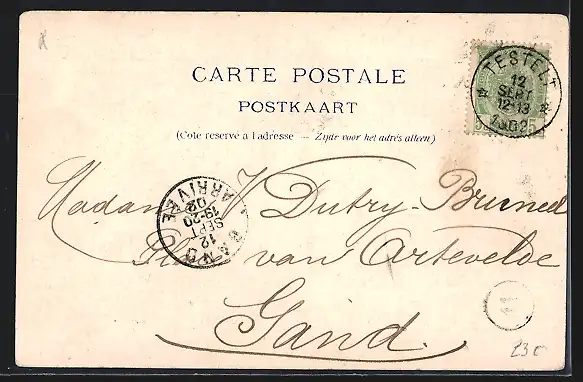 CARTE POSTALE
POSTKAART
(Côte réservé à l'adresse — Zijde voor het adrès alleen)
TESTELT
12
SEPT
12-13
1902
5
Madame V Dutry-
van Artevelde
Gand
GAND
12
SEPT
19-20
02
ARRIVÉE
11